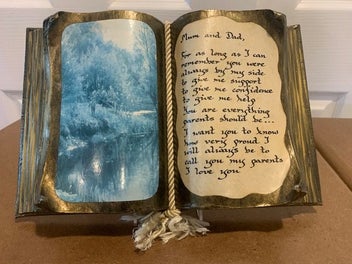 Mum and Dad,
For as long as I can
remember you were
always by my side
to give me support
to give me confidence
to give me help
You are everything
parents should be...
I want you to know
how very proud I
will always be to
call you my parents
I love you